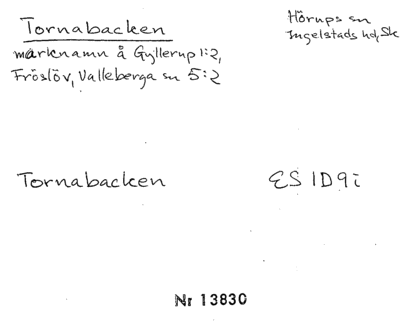 Tornabacken
Hörups sn
Ingelstads hd, Sk
marknamn å Gyllerup 1:2,
Fröslöv, Valleberga sn 5:2
Tornabacken
ES 1D9i
Nr 13830